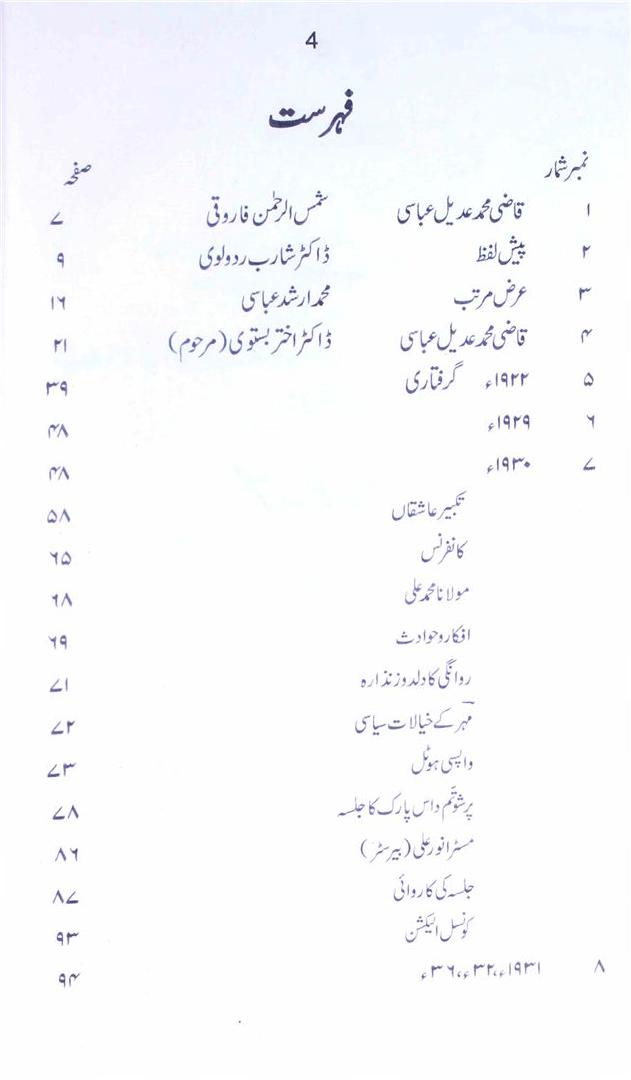 4
فہرست
نمبر شمار صفحہ
۱ قاضی محمد عدیل عباسی شمس الرحمٰن فاروقی ۷
۲ پیش لفظ ڈاکٹر شارب ردولوی ۹
۳ عرض مرتب محمد ارشد عباسی ۱۶
۴ قاضی محمد عدیل عباسی ڈاکٹر اختر بستوی (مرحوم) ۲۱
۵ ۱۹۲۲ء گرفتاری ۳۹
۶ ۱۹۲۹ء ۴۸
۷ ۱۹۳۰ء ۴۸
تکبیر عاشقاں ۵۸
کانفرنس ۶۵
مولانا محمد علی ۶۸
افکار و حوادث ۶۹
روانگی کا دلدوز نذارہ ۷۱
مہر کے خیالات سیاسی ۷۲
واپسی ہوٹل ۷۳
پرشوتّم داس پارک کا جلسہ ۷۸
مسٹر انور علی (بیرسٹر) ۸۶
جلسہ کی کاروائی ۸۷
کونسل الیکشن ۹۳
۸ ۱۹۳۱ء، ۳۲ء، ۳۶ء ۹۴